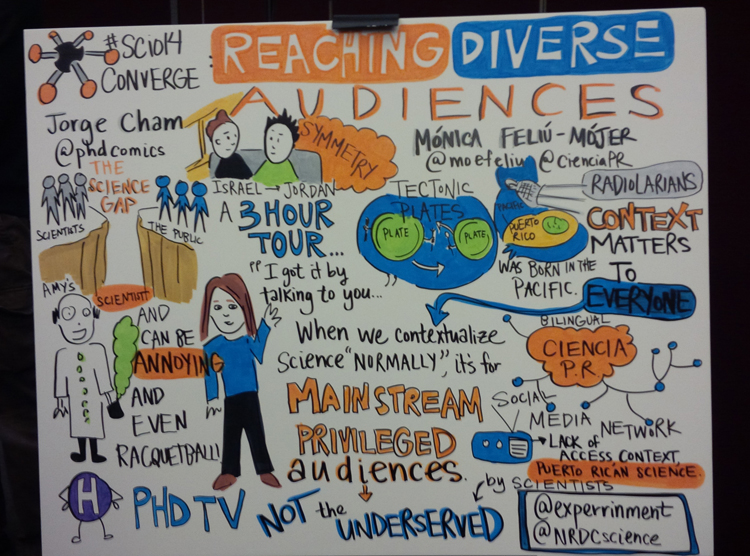 #SCIO14
CONVERGE :
REACHING DIVERSE
AUDIENCES
Jorge Cham
@phdcomics
SYMMETRY
MÓNICA FELIÚ-MÓJER
@moefeliu @CienciaPR
THE
SCIENCE
GAP
SCIENTISTS
THE PUBLIC
ISRAEL → JORDAN
A 3 HOUR
TOUR...
"I got it by
talking to you..."
TECTONIC
PLATES
PLATE
PLATE
PACIFIC
PUERTO
RICO
RADIOLARIANS
WAS BORN IN THE
PACIFIC.
CONTEXT
MATTERS
TO
EVERYONE
AMY'S
SCIENTIST
AND
CAN BE
ANNOYING
AND
EVEN
RACQUETBALL!
When we contextualize
Science "NORMALLY", it's for
MAINSTREAM
PRIVILEGED
audiences.
NOT the
UNDERSERVED
BILINGUAL
CIENCIA
P.R.
SOCIAL
MEDIA NETWORK
→ LACK OF
ACCESS CONTEXT
PUERTO RICAN SCIENCE.
by SCIENTISTS
H
PHD TV
@experrinment
@NRDCscience